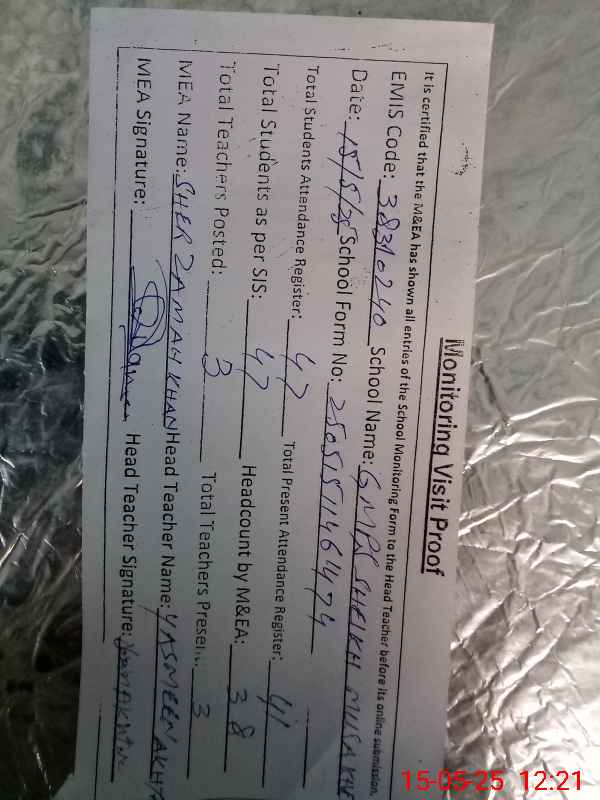 Monitoring Visit Proof
It is certified that the M&EA has shown all entries of the School Monitoring Form to the Head Teacher before its online submission.
EMIS Code: 38310240 School Name: GMPS SHEIKH MUSA KHE
Date: 15/5/25 School Form No: 2505151146474
Total Students Attendance Register: 47 Total Present Attendance Register: 41
Total Students as per SIS: 47 Headcount by M&EA: 38
Total Teachers Posted: 3 Total Teachers Present: 3
MEA Name: SHER ZAMAN KHAN Head Teacher Name: YASMEEN AKHTA
MEA Signature: Head Teacher Signature:
15-05-25 12:21